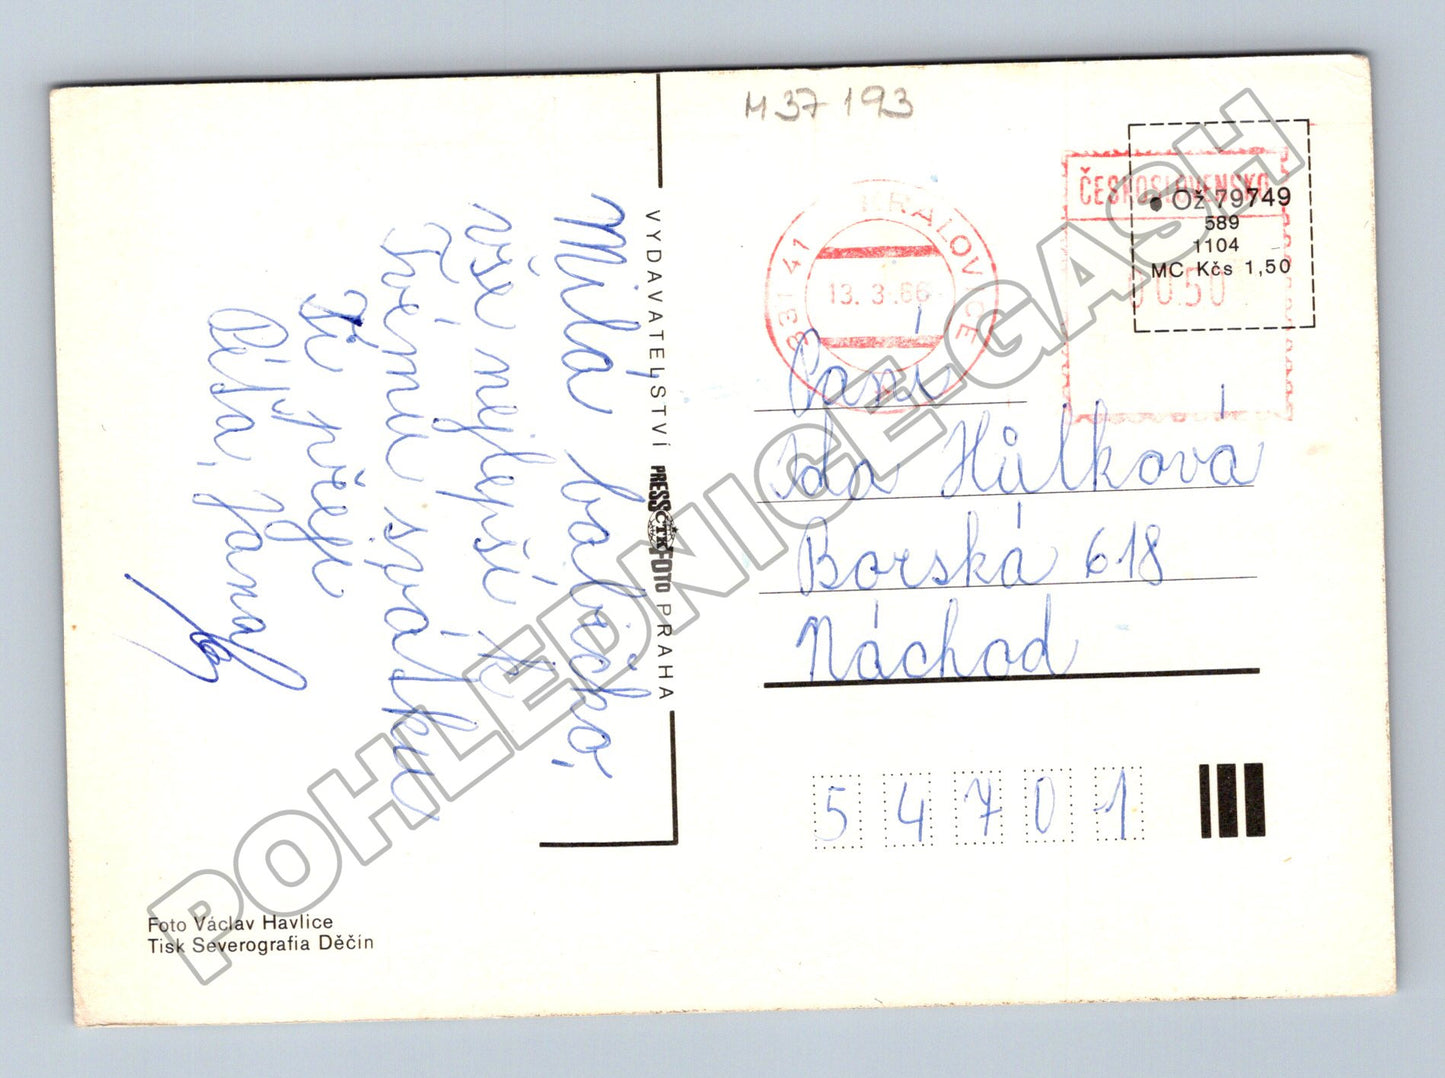 M 37 193
Milá babičko,
vše nejlepší k
Tvému svátku
Ti přeje
Péťa, Jana
VYDAVATELSTVÍ PRESSFOTO PRAHA
ČTK
331 41 KRALOVICE
13. 3. 86
ČESKOSLOVENSKO
0050
Ož 79749
589
1104
MC Kčs 1,50
Paní
Ida Hůlková
Borská 618
Náchod
54701
Foto Václav Havlice
Tisk Severografia Děčín
POHLEDNICE-GASH